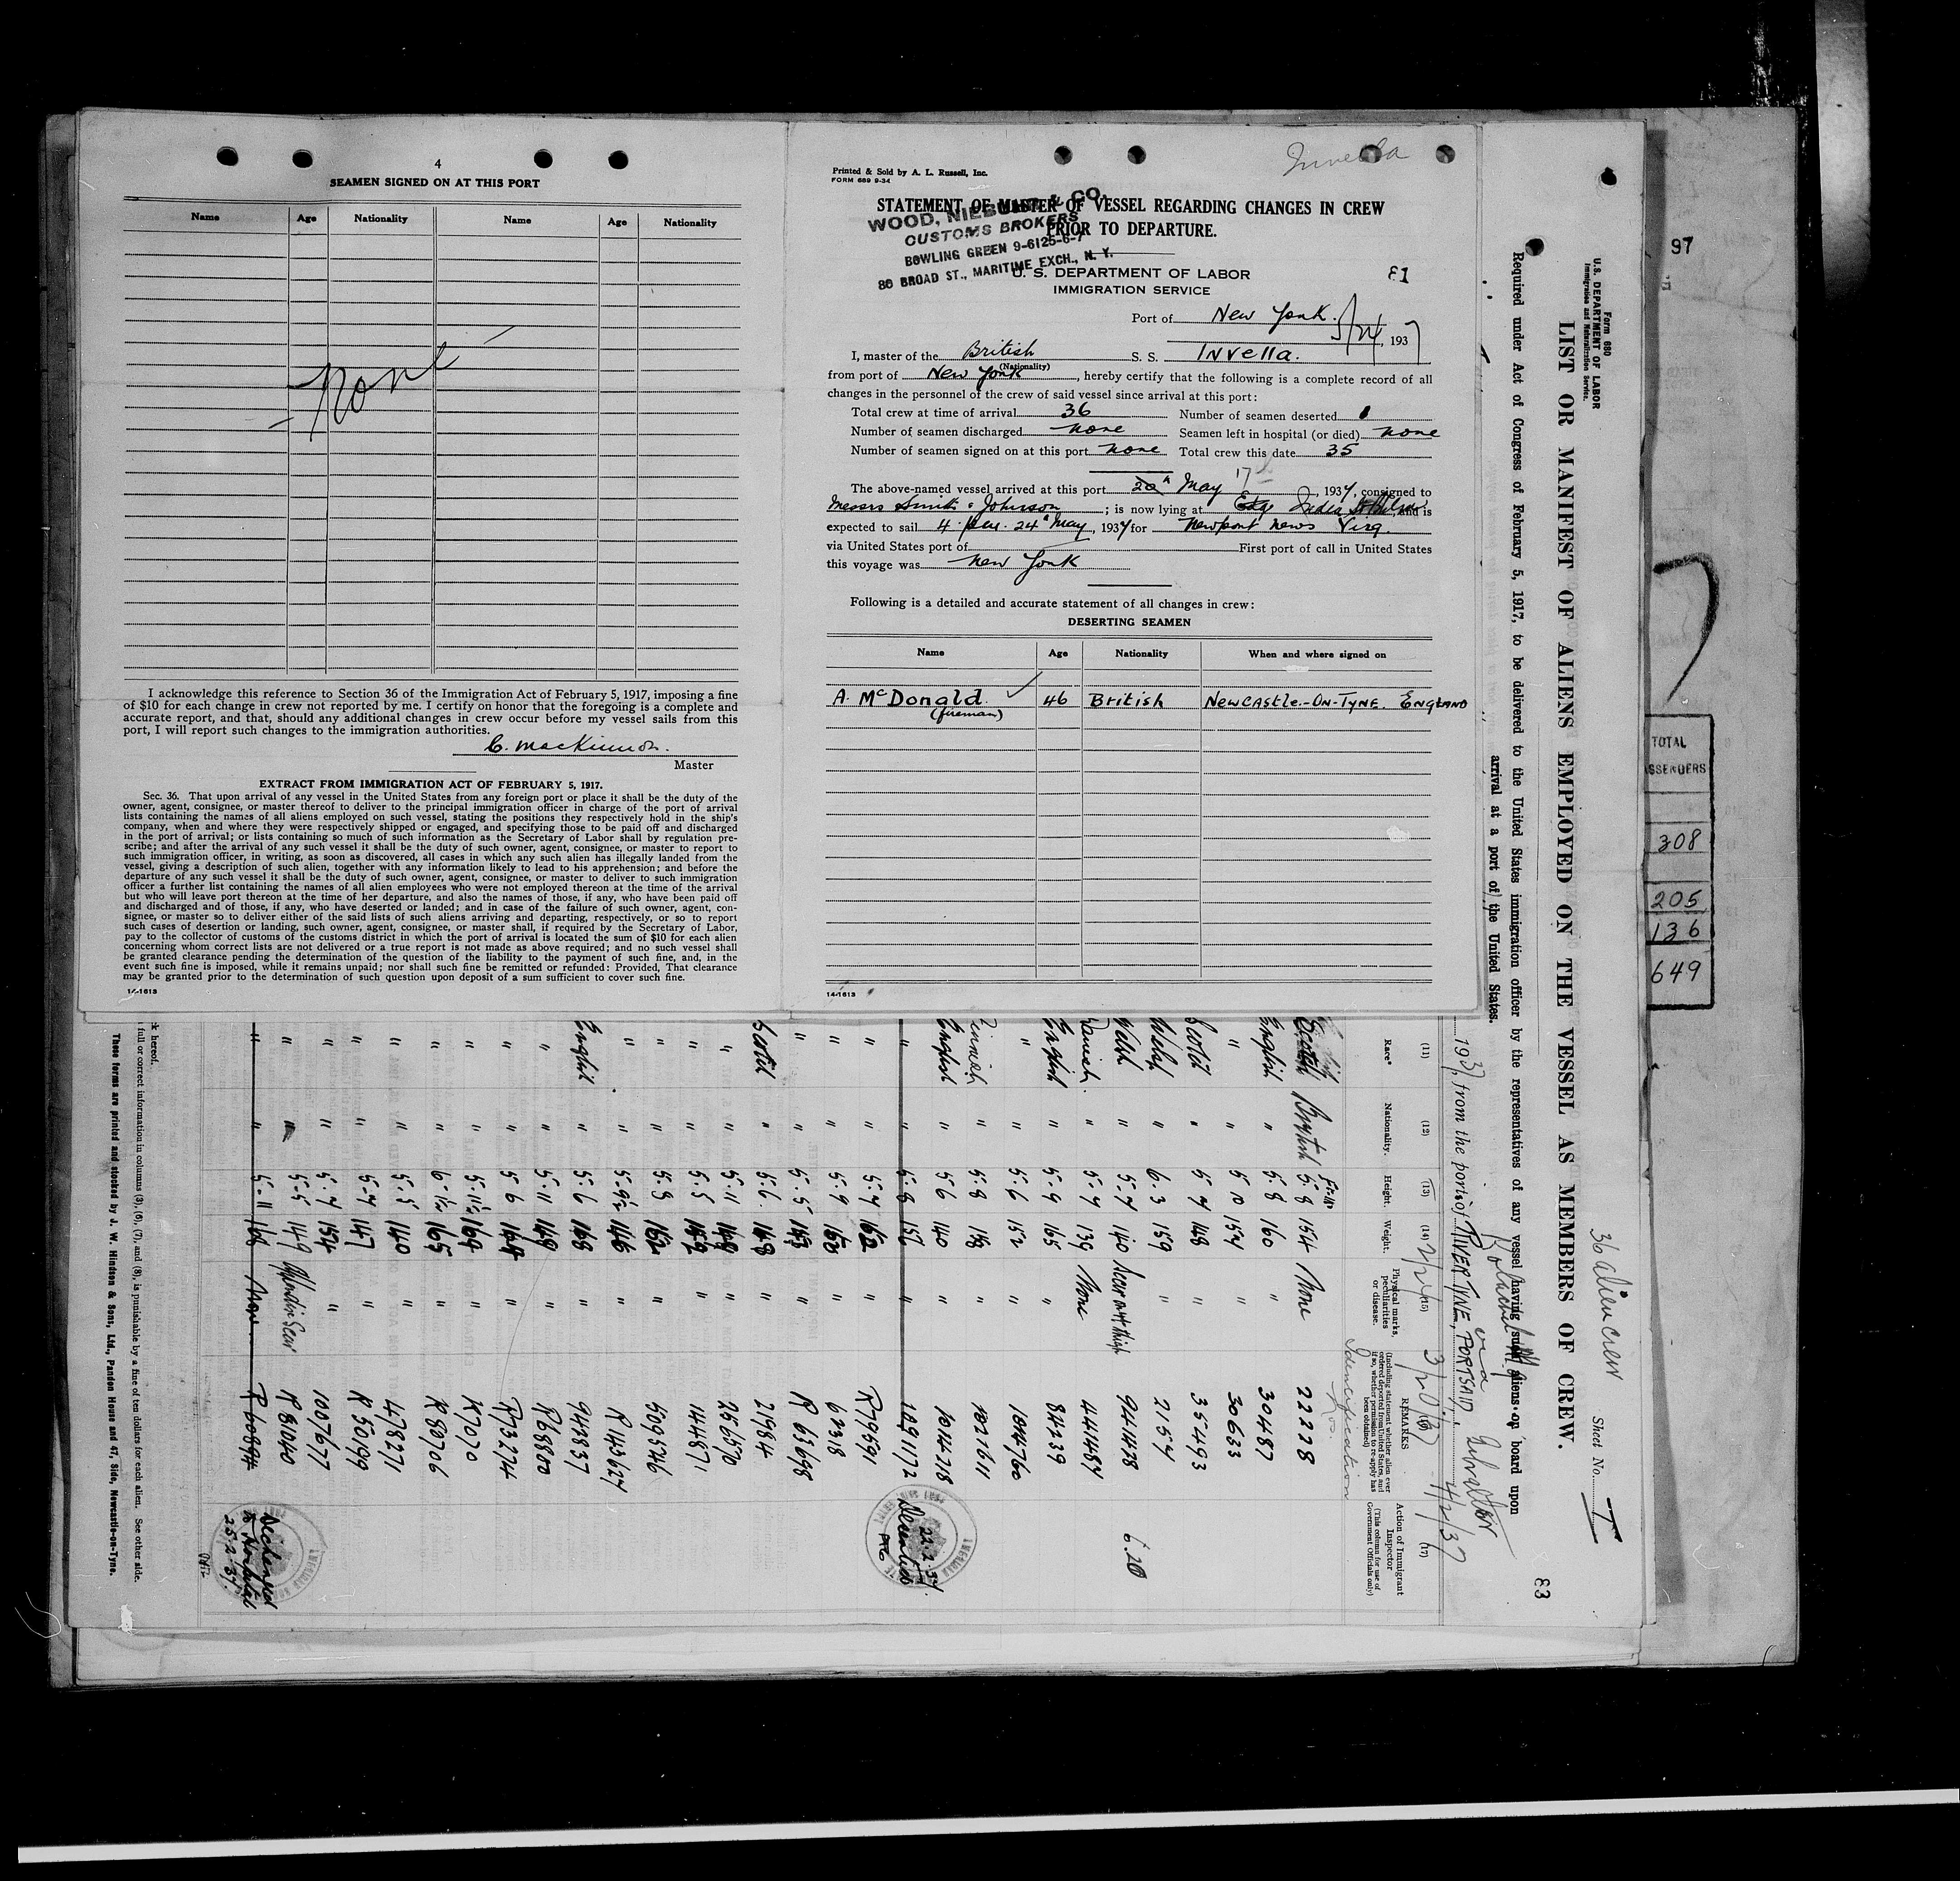 4
SEAMEN SIGNED ON AT THIS PORT
Name Age Nationality Name Age Nationality
None
I acknowledge this reference to Section 36 of the Immigration Act of February 5, 1917, imposing a fine
of $10 for each change in crew not reported by me. I certify on honor that the foregoing is a complete and
accurate report, and that, should any additional changes in crew occur before my vessel sails from this
port, I will report such changes to the immigration authorities.
C. MacKinnon.
Master
EXTRACT FROM IMMIGRATION ACT OF FEBRUARY 5, 1917.
Sec. 36. That upon arrival of any vessel in the United States from any foreign port or place it shall be the duty of the
owner, agent, consignee, or master thereof to deliver to the principal immigration officer in charge of the port of arrival
lists containing the names of all aliens employed on such vessel, stating the positions they respectively hold in the ship's
company, when and where they were respectively shipped or engaged, and specifying those to be paid off and discharged
in the port of arrival; or lists containing so much of such information as the Secretary of Labor shall by regulation pre-
scribe; and after the arrival of any such vessel it shall be the duty of such owner, agent, consignee, or master to report to
such immigration officer, in writing, as soon as discovered, all cases in which any such alien has illegally landed from the
vessel, giving a description of such alien, together with any information likely to lead to his apprehension; and before the
departure of any such vessel it shall be the duty of such owner, agent, consignee, or master to deliver to such immigration
officer a further list containing the names of all alien employees who were not employed thereon at the time of the arrival
but who will leave port thereon at the time of her departure, and also the names of those, if any, who have been paid off
and discharged and of those, if any, who have deserted or landed; and in case of the failure of such owner, agent, con-
signee, or master so to deliver either of the said lists of such aliens arriving and departing, respectively, or so to report
such cases of desertion or landing, such owner, agent, consignee, or master shall, if required by the Secretary of Labor,
pay to the collector of customs of the customs district in which the port of arrival is located the sum of $10 for each alien
concerning whom correct lists are not delivered or a true report is not made as above required; and no such vessel shall
be granted clearance pending the determination of the question of the liability to the payment of such fine, and, in the
event such fine is imposed, while it remains unpaid; nor shall such fine be remitted or refunded: Provided, That clearance
may be granted prior to the determination of such question upon deposit of a sum sufficient to cover such fine.
14-1613
Invella
Printed & Sold by A. L. Russell, Inc.
FORM 689 9-34
STATEMENT OF MASTER OF VESSEL REGARDING CHANGES IN CREW
PRIOR TO DEPARTURE.
CUSTOMS BROKERS
BOWLING GREEN 9-6125-6-7
80 BROAD ST., MARITIME EXCH., N. Y.
U. S. DEPARTMENT OF LABOR
IMMIGRATION SERVICE
81
Port of New York.
5/24, 1937
I, master of the British S. S. Invella.
(Nationality)
from port of New York, hereby certify that the following is a complete record of all
changes in the personnel of the crew of said vessel since arrival at this port:
Total crew at time of arrival 36 Number of seamen deserted 1
Number of seamen discharged none Seamen left in hospital (or died) none
Number of seamen signed on at this port none Total crew this date 35
The above-named vessel arrived at this port 20th May 17th, 1937, consigned to
Messrs Smith & Johnson; is now lying at India St, and is
expected to sail 4 pm. 24th May, 1937 for Newport News Virg.
via United States port of First port of call in United States
this voyage was New York
Following is a detailed and accurate statement of all changes in crew:
DESERTING SEAMEN
Name Age Nationality When and where signed on
A. McDonald. 46 British Newcastle-On-Tyne. England
(fireman)
14-1613
Form 680
U. S. DEPARTMENT OF LABOR
Immigration and Naturalization Service.
LIST OR MANIFEST OF ALIENS EMPLOYED ON THE VESSEL AS MEMBERS OF CREW.
36 alien crew
Sheet No. 1
Required under Act of Congress of February 5, 1917, to be delivered to the United States immigration officer by the representatives of any vessel having such aliens on board upon
arrival at a port of the United States.
83
1937, from the port of RIVER TYNE, PORTSAID, via Gibraltar
(11) (12) (13) (14) (15) (17)
Race* Nationality. Height. Weight. Physical marks, peculiarities or disease. REMARKS Action of Immigrant Inspector
(Including statement whether alien ever ordered deported from United States, and if so, whether permission to re-apply has been obtained)
(This column for use of Government Officials only)
Identification Nos.
British 5-8 154 None 22228
English " 5-8 160 " 30487
" " 5-10 154 " 30633
Scotch " 5-7 148 " 35493
Welsh " 6-3 159 " 2154
Welsh " 5-7 140 941488
Danish " 5-7 139 None 444484
English " 5-9 165 " 84239
" " 5-6 152 " 104760
Finnish " 5-8 148 " 1021611
English " 5-6 140 " 101428
" " 5-8 156 " 1091172
22.2.37
Deserted
" " 5-7 162 " R79591
" " 5-9 160 " 62318
" " 5-5 143 " R 63698
Scotch " 5-6 148 " 21984
" " 5-11 149 " 256570
" " 5-5 " 144871
" " 5-8 152 " 5095246
" " 5-9½ 146 " R 143627
English " 5-6 168 " 942837
" " 5-11 149 " R68800
" " 5-6 164 " R73274
" " 5-11½ 164 " R7070
" " 6-1½ 165 " R 80706
" " 5-5 140 " 478271
" " 5-7 147 " R 50199
" " 5-7 154 " 1007677
" " 5-5 149 R 81040
" " 5-11 168 None R 60894
to Hospital
25.2.37.
k hereof.
full or correct information in columns (3), (6), (7), and (8), is punishable by a fine of ten dollars for each alien. See other side.
These forms are printed and stocked by J. W. Hindson & Sons, Ltd., Pandon House and 47, Side, Newcastle-on-Tyne.
97
TOTAL
308
205
136
649